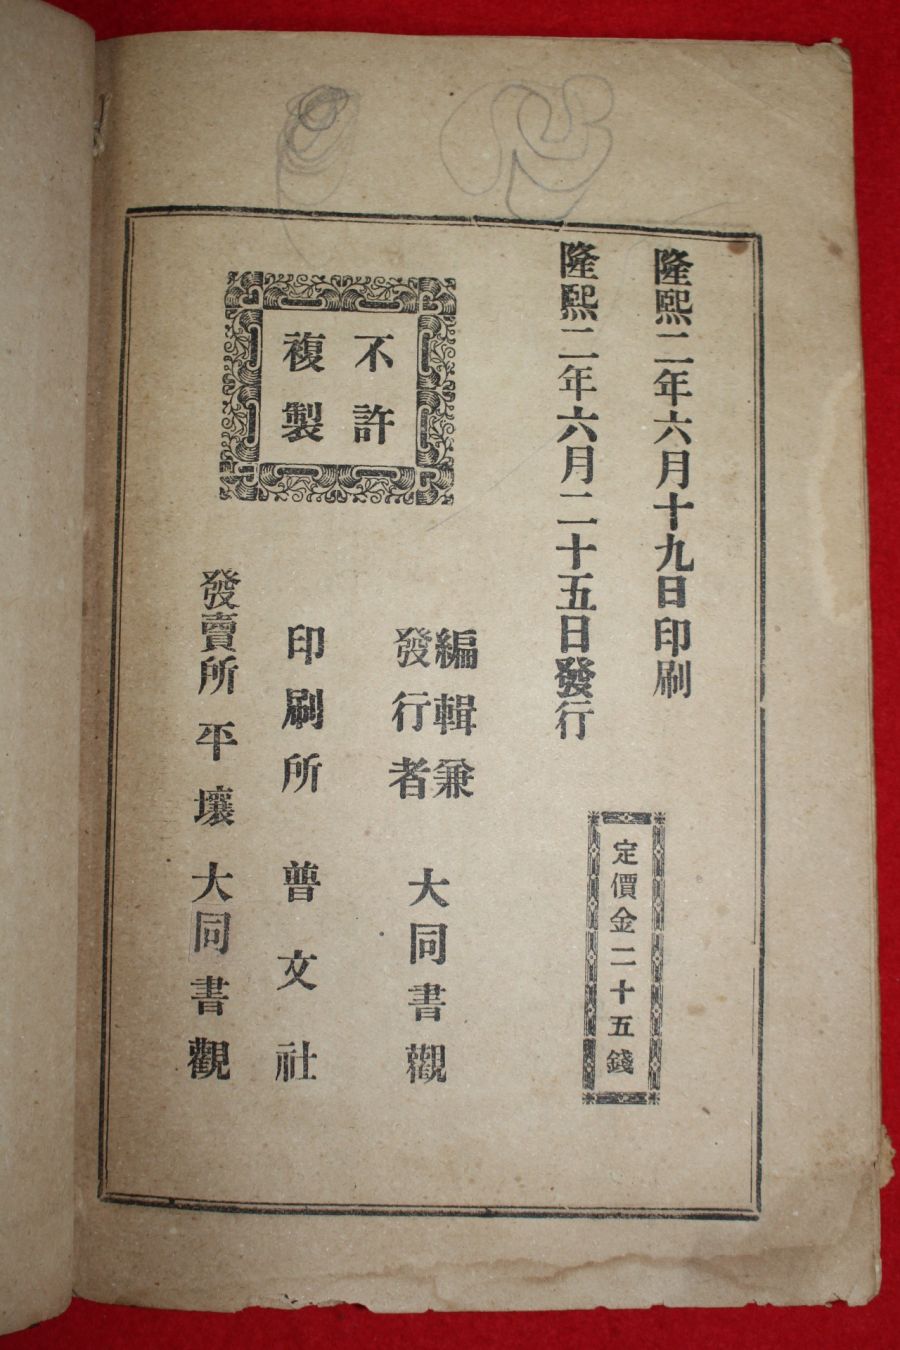 隆熙二年六月十九日印刷
隆熙二年六月二十五日發行
定價金二十五錢
編輯兼
發行者
大同書觀
印刷所 普文社
發賣所 平壤 大同書觀
不許
複製